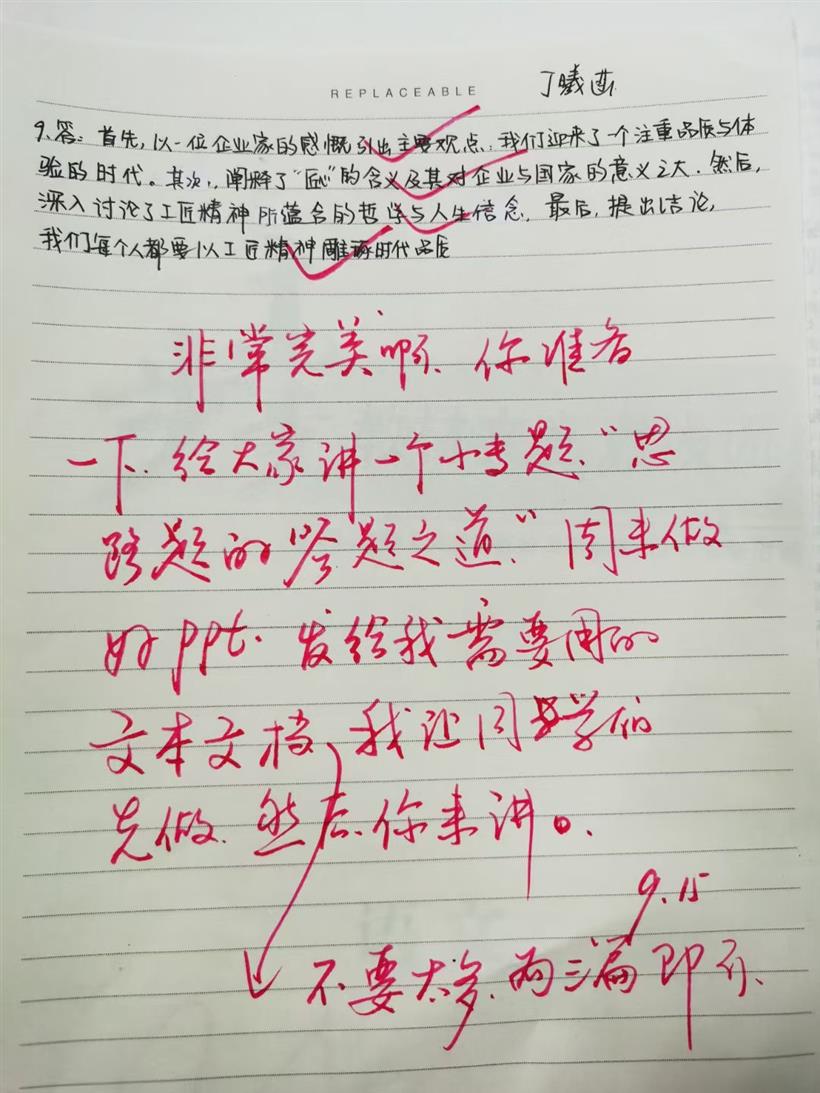 REPLACEABLE
丁曦
9.答：首先，以一位企业家的感慨引出主要观点：我们迎来了一个注重品质与体
验的时代。其次，阐释了“匠心”的含义及其对企业与国家的意义之大．然后，
深入讨论了工匠精神所蕴含的哲学与人生信念．最后，提出结论，
我们每个人都要以工匠精神雕琢时代品质
非常完美啊．你准备
一下．给大家讲一个小专题．“思
路题的答题之道．”周末做
好ppt．发给我需要用的
文本文档，我让同学们
先做．然后．你来讲。．
9.15
不要太多．两三篇即可．